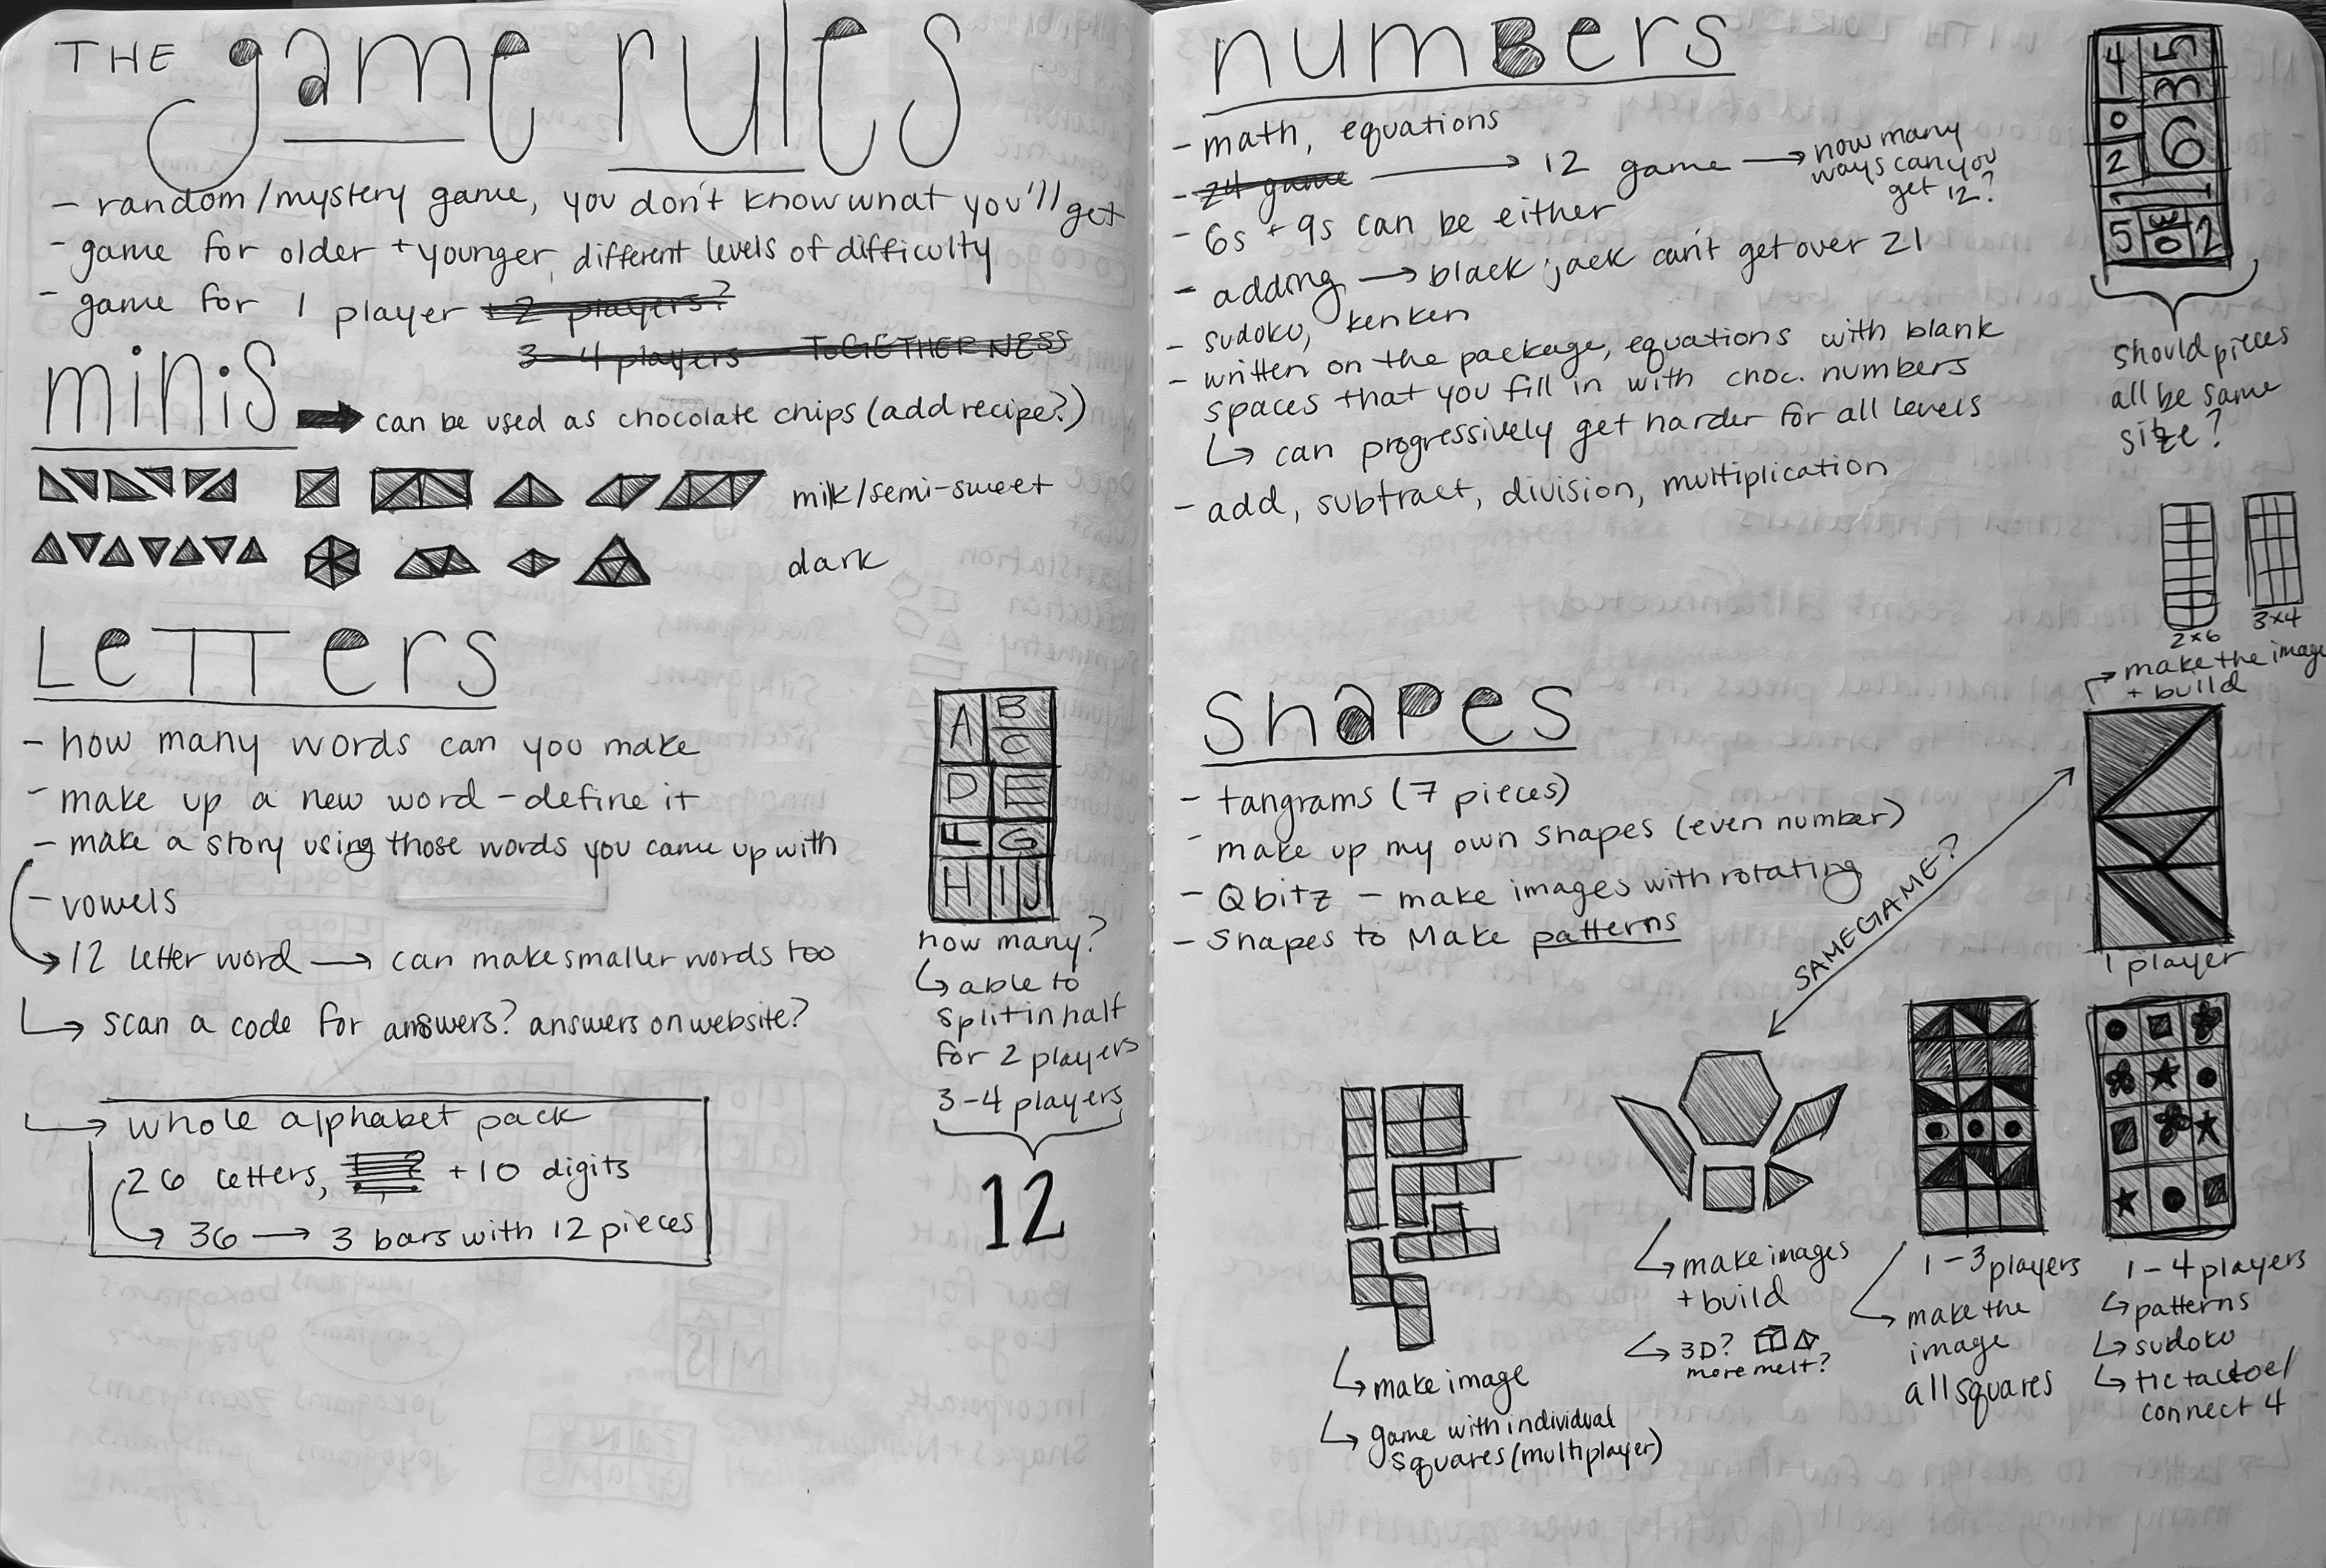 THE game rules
- random/mystery game, you don't know what you'll get
- game for older + younger, different levels of difficulty
- game for 1 player + 2 players?
3-4 players - TOGETHERNESS
minis → can be used as chocolate chips (add recipe?)
milk/semi-sweet
dark
LeTTers
- how many words can you make
- make up a new word - define it
- make a story using those words you came up with
- vowels
→ 12 letter word → can make smaller words too
↳ scan a code for answers? answers on website?
→ whole alphabet pack
26 letters, + 10 digits
↳ 36 → 3 bars with 12 pieces
A B
C
D E
F G
H I J
how many?
↳ able to
split in half
for 2 players
3-4 players
12
numBers
- math, equations
- 24 game → 12 game → how many
ways can you
get 12?
- 6s + 9s can be either
- adding → black jack can't get over 21
- sudoku, kenken
- written on the package, equations with blank
spaces that you fill in with choc. numbers
↳ can progressively get harder for all levels
- add, subtract, division, multiplication
4 5
3
0 6
2
1
5 2
should pieces
all be same
size?
2x6
3x4
→ make the image
+ build
1 player
shapes
- tangrams (7 pieces)
- make up my own shapes (even number)
- Qbitz - make images with rotating
- shapes to make patterns
SAME GAME?
↳ make image
↳ game with individual
squares (multiplayer)
↳ make images
+ build
↳ 3D?
more melt?
1-3 players
↳ make the
image
all squares
1-4 players
↳ patterns
↳ sudoku
↳ tic tac toe/
connect 4